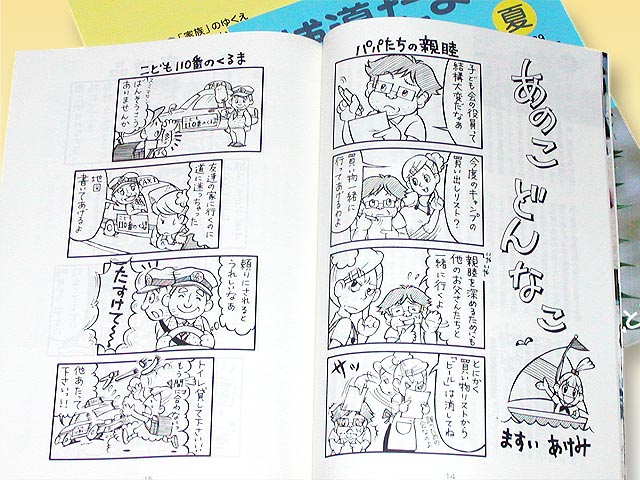 の「家族」のゆくえ
夏
あのこ どんなこ
ますい あけみ
パパたちの親睦
子ども会の役員って
結構大変だなぁ
今度のキャンプの
買い出しリスト?
買い物一緒に
行ってあげるわよ
いやいや
親睦を深めるためにも
他のお父さんたちと
一緒に行くよ
とにかく
買い物リストから
「ビール」は消してね
サッ
14
こども110番のくるま
はんそうこう
ありませんか
110番のくるま
友達の家に行くのに
道に迷っちゃった
TAXI
110番のくるま
地図
書いてあげるよ
頼りにされると
うれしいなあ
たすけて〜〜
トイレ貸して下さい!!
もう間に合わない
他あたって
下さい!!!
15